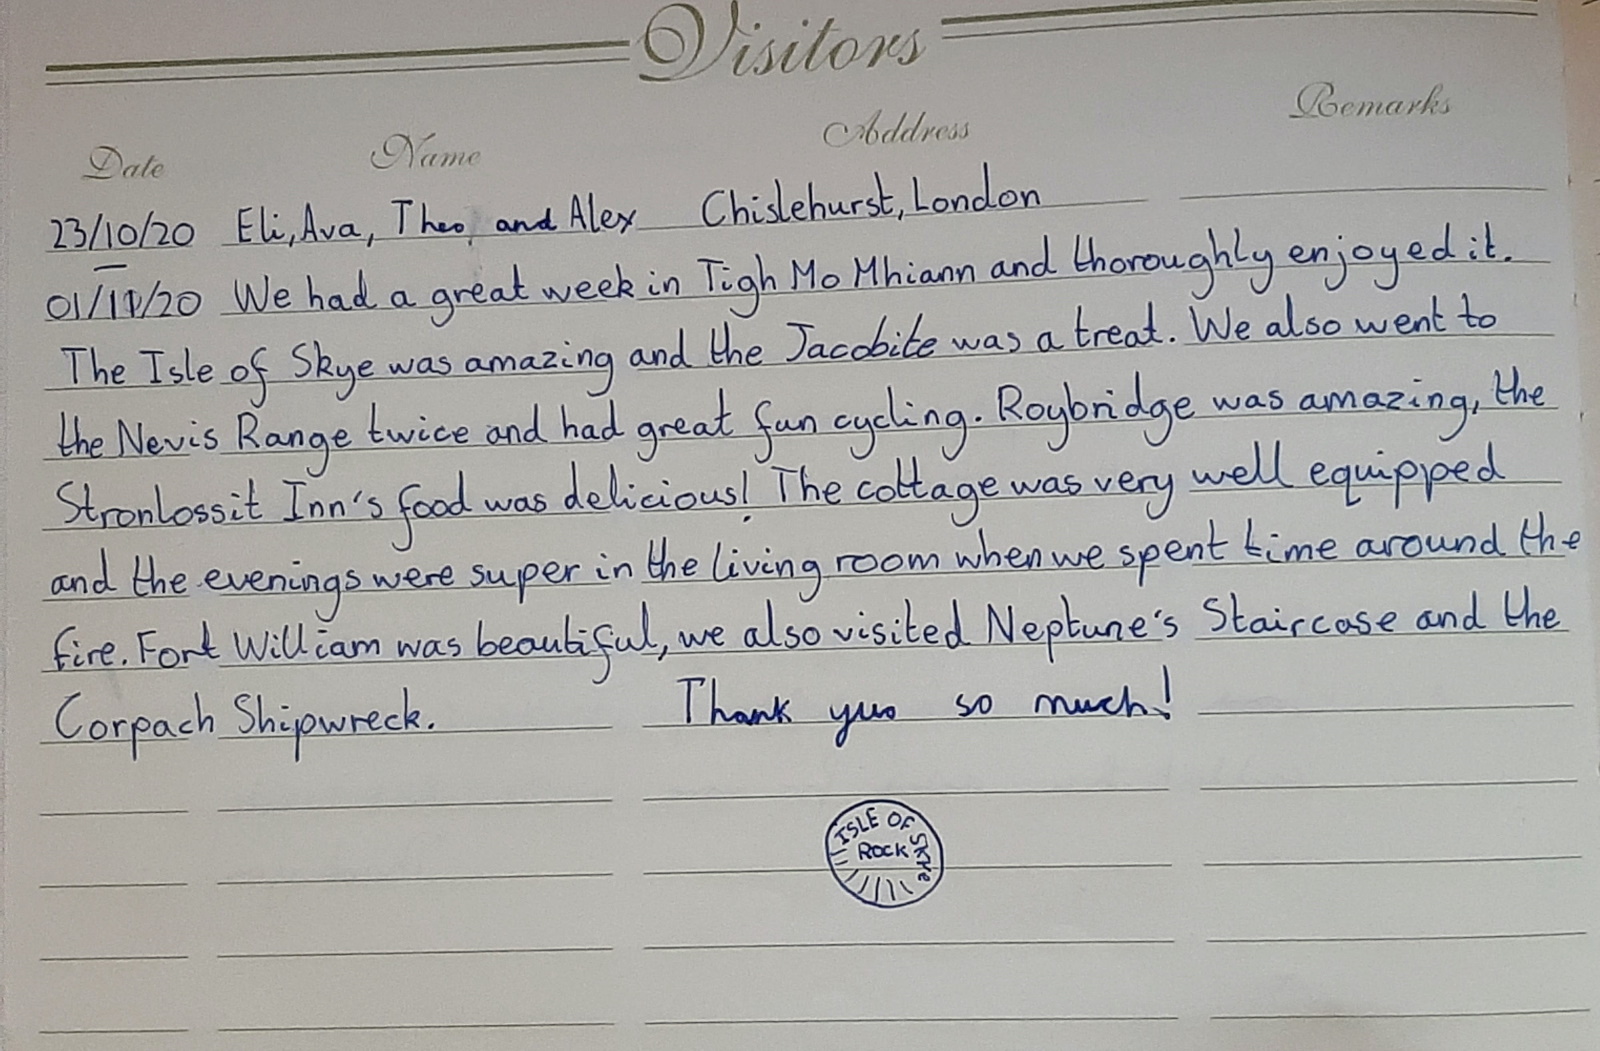 Visitors
Date Name Address Remarks
23/10/20 Eli, Ava, Theo, and Alex Chislehurst, London
—
01/11/20 We had a great week in Tigh Mo Mhiann and thoroughly enjoyed it.
The Isle of Skye was amazing and the Jacobite was a treat. We also went to
the Nevis Range twice and had great fun cycling. Roybridge was amazing, the
Stronlossit Inn's food was delicious! The cottage was very well equipped
and the evenings were super in the living room when we spent time around the
fire. Fort William was beautiful, we also visited Neptune's Staircase and the
Corpach Shipwreck. Thank yuo so much!
ISLE OF SKYE
ROCK